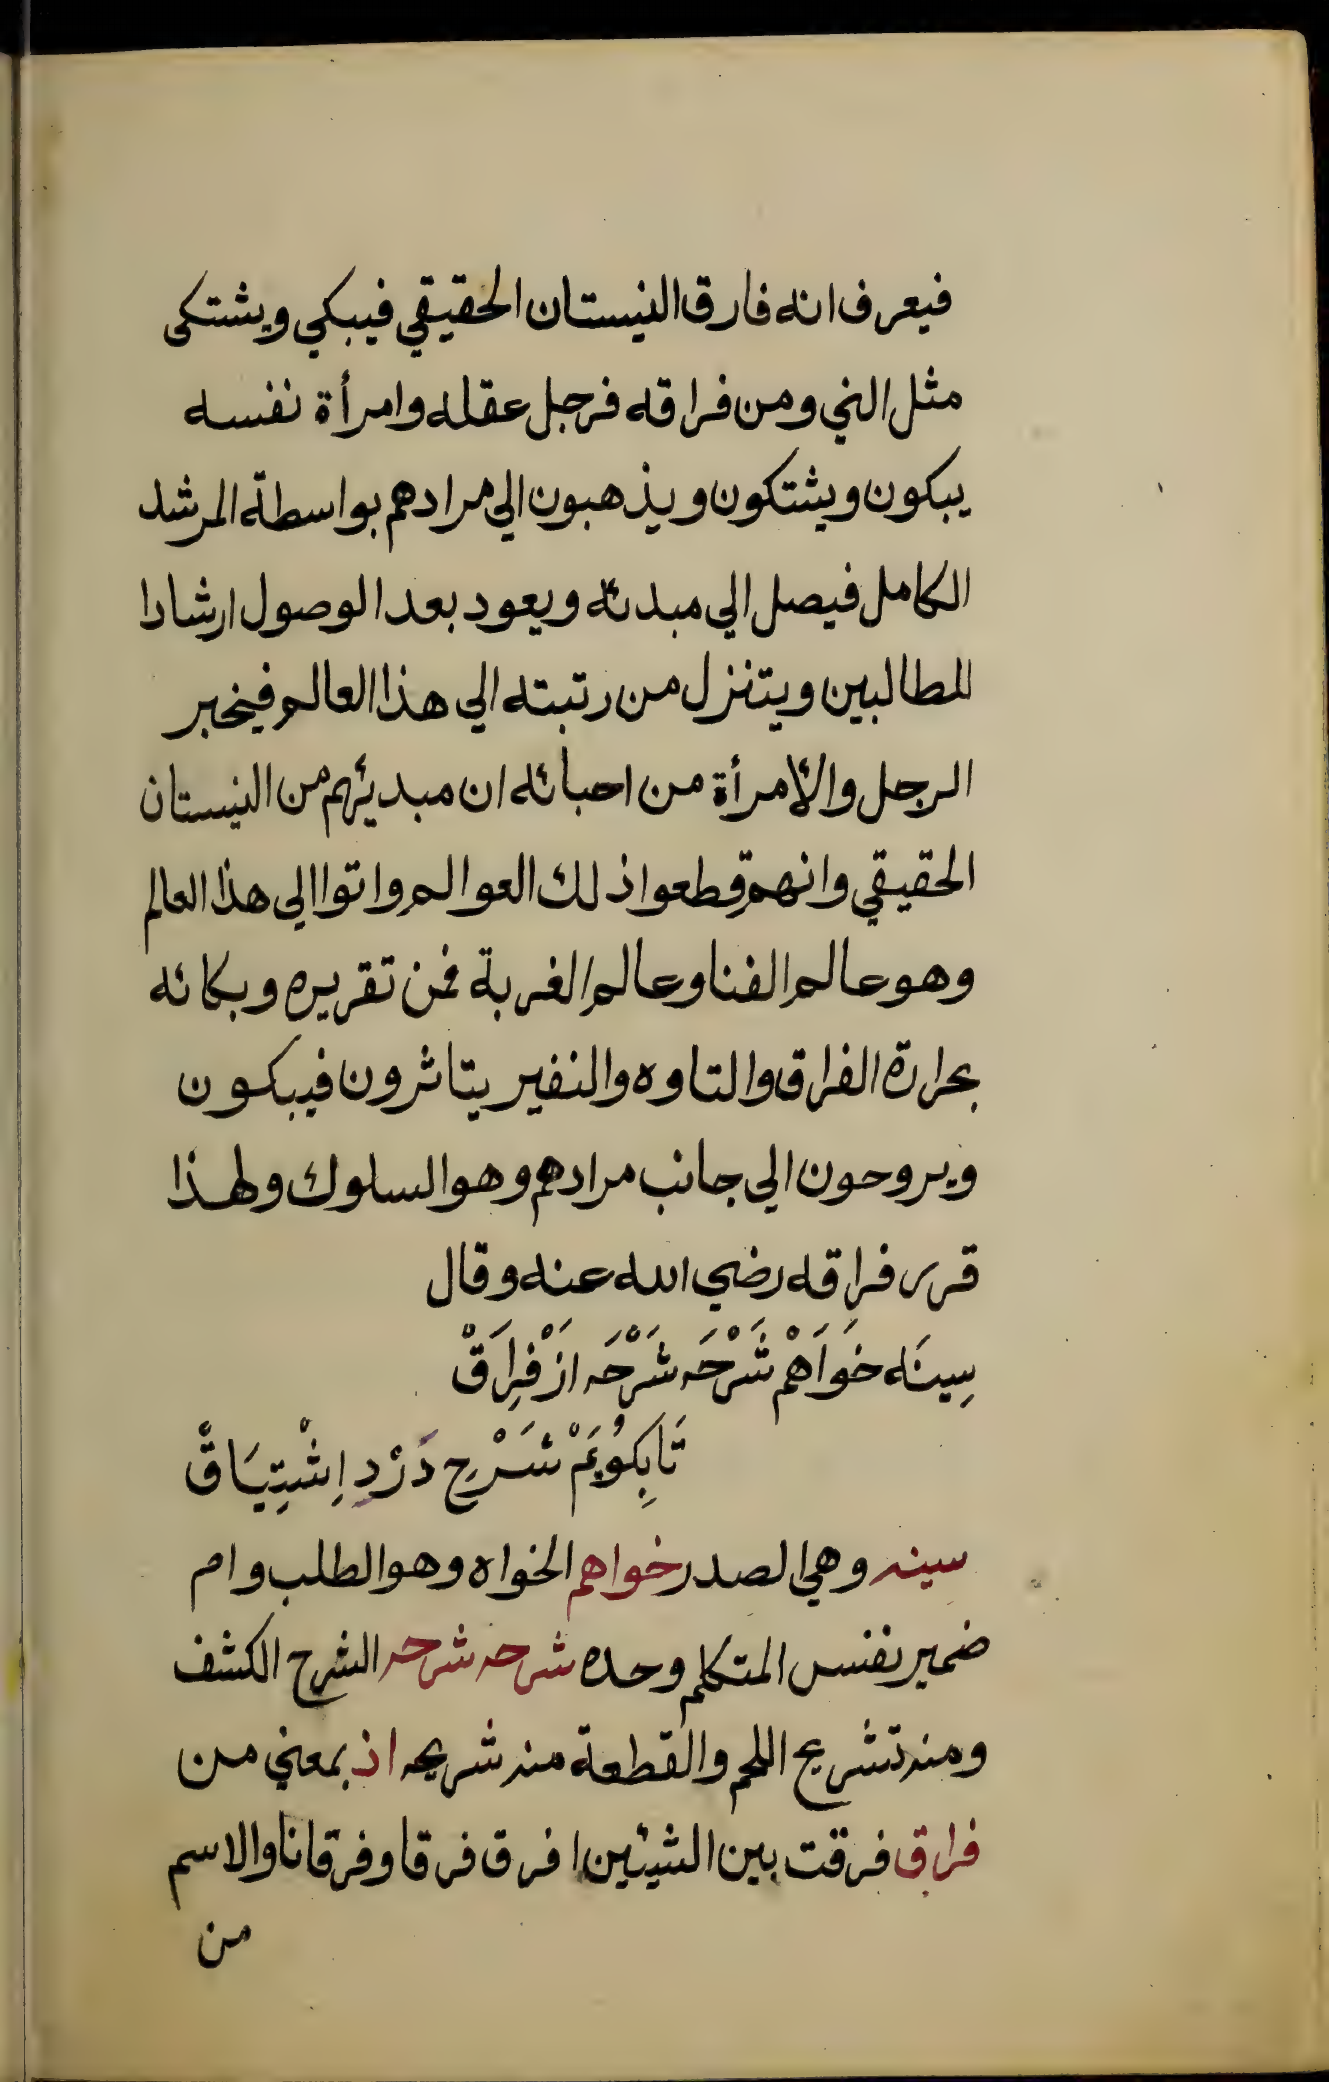 فيعرف انه فارق النيستان الحقيقي فيبكي ويشتكى
مثل الني ومن فراقه فرجل عقله وامرأة نفسه
يبكون ويشتكون ويذهبون الي مرادهم بواسطة المرشد
الكامل فيصل الي مبدئه ويعود بعد الوصول ارشادا
للطالبين ويتنزل من رتبته الي هذا العالم فيخبر
الرجل والأمرأة من احبائه ان مبديئهم من النيستان
الحقيقي وانهم قطعوا ذلك العوالم واتوا الي هذا العالم
وهو عالم الفنا وعالم الغربة فمن تقريره وبكائه
بحرارة الفراق والتاوه والنفير يتاثرون فيبكون
ويروحون الي جانب مرادهم وهو السلوك ولهذا
قرر فراقه رضي الله عنه وقال
سِينَه خَوَاهَمْ شَرْحَه شَرْحَه ازْ فِرَاقْ
تَابِكُويَمْ شَرْحِ دَرْدِ اِشْتِيَاقْ
سينه وهي الصدر خواهم الخواه وهو الطلب وام
ضمير نفس المتكلم وحده شرحه شرحه الشرح الكشف
ومنه تشريح اللحم والقطعة منه شريحه اذ بمعني من
فراق فرقت بين الشيئين افرق فرقا وفرقانا والاسم
من